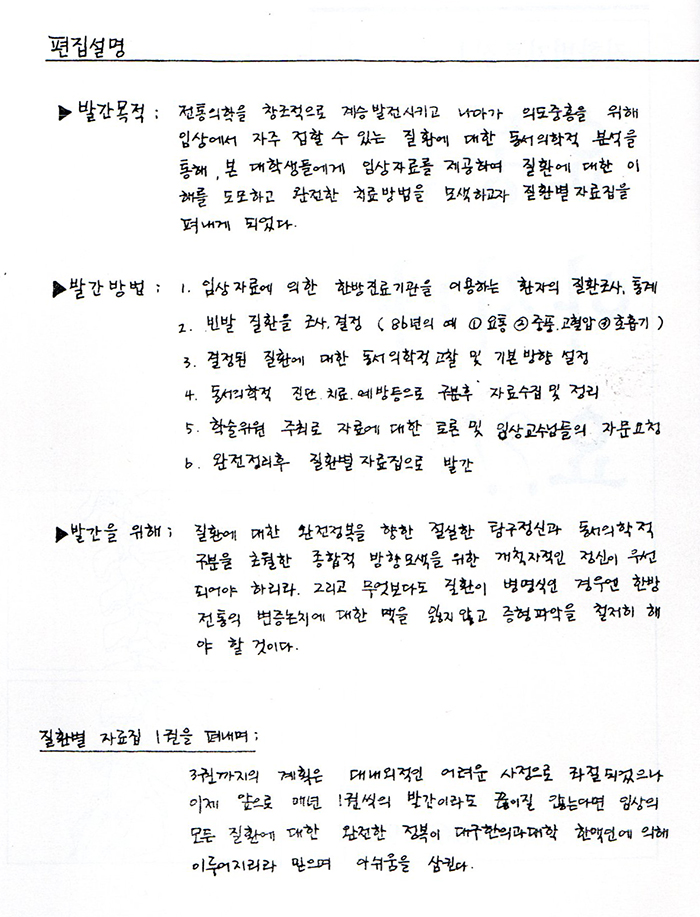 편집설명
▶발간목적; 전통의학을 창조적으로 계승발전시키고 나아가 의도중흥을 위해
임상에서 자주 접할 수 있는 질환에 대한 동서의학적 분석을
통해, 본 대학생들에게 임상자료를 제공하여 질환에 대한 이
해를 도모하고 완전한 치료방법을 모색하고자 질환별 자료집을
펴내게 되었다.
▶발간방법; 1. 임상자료에 의한 한방진료기관을 이용하는 환자의 질환조사, 통계
2. 빈발 질환을 조사.결정 (86년의 예 ①요통 ②중풍.고혈압 ③호흡기)
3. 결정된 질환에 대한 동서의학적고찰 및 기본방향 설정
4. 동서의학적 진단.치료.예방등으로 구분후 자료수집 및 정리
5. 학술위원 주최로 자료에 대한 토론 및 임상교수님들의 자문요청
6. 완전정리후 질환별 자료집으로 발간
▶발간을 위해; 질환에 대한 완전정복을 향한 절실한 탐구정신과 동서의학적
구분을 초월한 종합적 방향모색을 위한 개척자적인 정신이 우선
되어야 하리라. 그리고 무엇보다도 질환이 병명식인 경우엔 한방
전통의 변증논치에 대한 맥을 잃지않고 증형파악을 철저히 해
야 할 것이다.
질환별 자료집 1권을 펴내며;
3권까지의 계획은 대내외적인 어려운 사정으로 좌절되었으나
이제 앞으로 매년 1권씩의 발간이라도 끊이질 않는다면 임상의
모든 질환에 대한 완전한 정복이 대구한의과대학 한액연에 의해
이루어지리라 믿으며 아쉬움을 삼킨다.